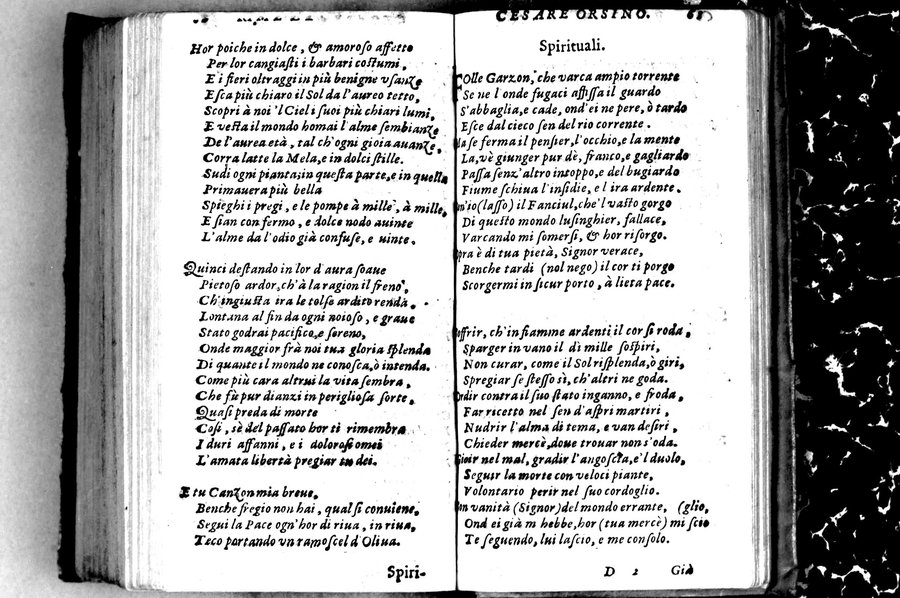 Hor poiche in dolce, & amoroso affetto
Per lor cangiasti i barbari costumi,
E i fieri oltraggi in più benigne vsanze
Esca più chiaro il Sol da l'aureo tetto,
Scopri à noi 'l Ciel i suoi più chiari lumi,
E vesta il mondo homai l'alme sembianze
De l'aurea età, tal ch'ogni gioia auanze,
Corra latte la Mela, e in dolci stille.
Sudi ogni pianta; in questa parte, e in quella
Primauera più bella
Spieghi i pregi, e le pompe à mille, à mille,
E sian con fermo, e dolce nodo auinte
L'alme da l'odio già confuse, e uinte.
Quinci destando in lor d'aura soaue
Pietoso ardor, ch'à la ragion il freno,
Ch'ingiusta ira le tolse ardito renda,
Lontana al fin da ogni noioso, e graue
Stato godrai pacifico, e sereno,
Onde maggior frà noi tua gloria splenda
Di quante il mondo ne conosca, ò intenda.
Come più cara altrui la vita sembra,
Che fù pur dianzi in perigliosa sorte,
Quasi preda di morte
Così, sè del passato hor ti rimembra
I duri affanni, e i dolorosi omei
L'amata libertà pregiar tu dei.
E tu Canzon mia breue,
Benche fregio non hai, qual si conuiene,
Segui la Pace ogn'hor di riua, in riua,
Teco portando vn ramoscel d'Oliua.
Spiri-
CESARE ORSINO. 61
Spirituali.
Folle Garzon, che varca ampio torrente
Se ne l'onde fugaci affissa il guardo
S'abbaglia, e cade, ond'ei ne pere, ò tardo
Esce dal cieco sen del rio corrente.
Ma se ferma il pensier, l'occhio, e la mente
La, vè giunger pur dè, franco, e gagliardo
Passa senz'altro intoppo, e del bugiardo
Fiume schiua l'insidie, e l ira ardente.
io (lasso) il Fanciul, che'l vasto gorgo
Di questo mondo lusinghier, fallace,
Varcando mi somersi, & hor risorgo.
pra è di tua pietà, Signor verace,
Benche tardi (nol nego) il cor ti porgo
Scorgermi in sicur porto, à lieta pace.
offrir, ch'in fiamme ardenti il cor si roda,
Sparger in vano il dì mille sospiri,
Non curar, come il Sol risplenda, ò giri,
Spregiar se stesso sì, ch'altri ne goda.
Ordir contra il suo stato inganno, e froda,
Far ricetto nel sen d'aspri martiri,
Nudrir l'alma di tema, e van desiri,
Chieder mercè, doue trouar non s'oda.
Gioir nel mal, gradir l'angoscia, e'l duolo,
Seguir la morte con veloci piante,
Volontario perir nel suo cordoglio.
In vanità (Signor) del mondo errante, (glio,
Ond ei già m hebbe, hor (tua mercè) mi scio
Te seguendo, lui lascio, e me consolo.
D 2 Già